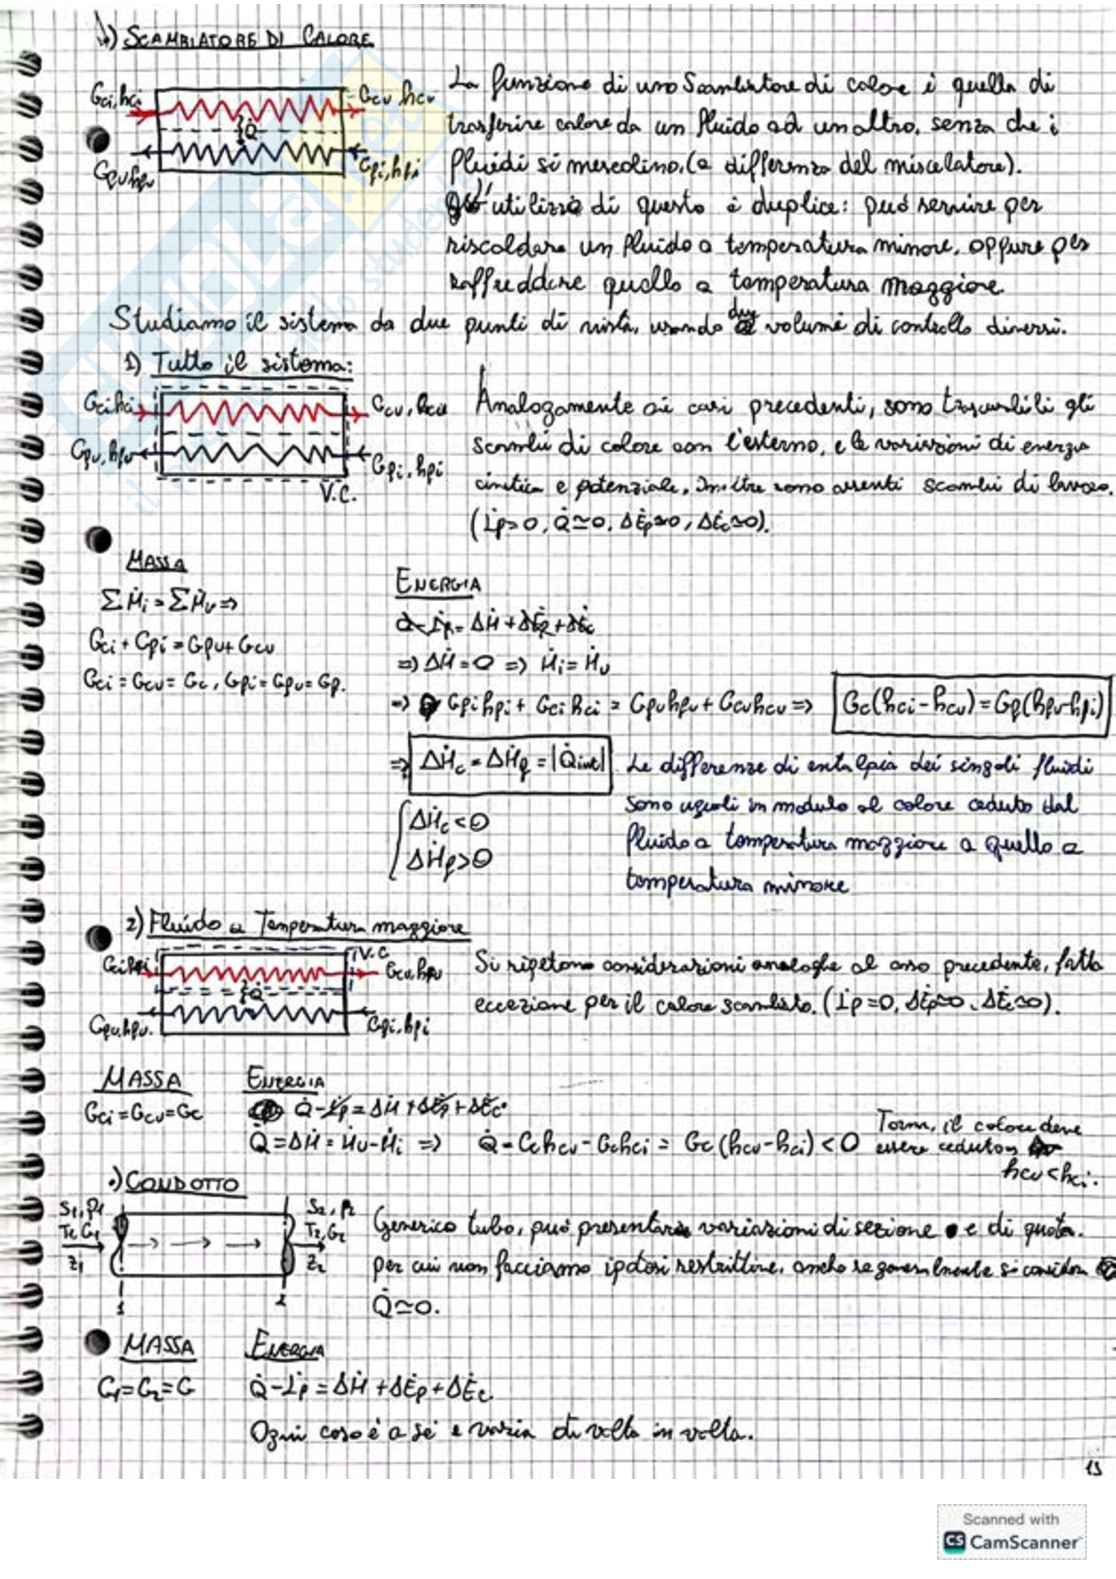 •) SCAMBIATORE DI CALORE
Gci, hci
Gcu, hcu
Q̇
Gfu, hfu
Gfi, hfi
La funzione di uno Scambiatore di calore è quella di
trasferire calore da un fluido ad un altro, senza che i
fluidi si mescolino, (a differenza del miscelatore).
L'utilizzo di questo è duplice: può servire per
riscaldare un fluido a temperatura minore, oppure per
raffreddare quello a temperatura maggiore
Studiamo il sistema da due punti di vista, usando due volumi di controllo diversi.
1) Tutto il sistema:
Gci, hci
Gcu, hcu
Gfu, hfu
Gfi, hfi
V.C.
Analogamente ai casi precedenti, sono trascurabili gli
scambi di calore con l'esterno, e le variazioni di energia
cinetica e potenziale, inoltre sono assenti scambi di lavoro.
(L̇p=0, Q̇≃0, ΔĖp≃0, ΔĖc≃0).
MASSA
ΣṀi = ΣṀu ⇒
Gci + Gfi = Gfu + Gcu
Gci = Gcu = Gc, Gfi = Gfu = Gf.
ENERGIA
Q̇ - L̇p = ΔḢ + ΔĖp + ΔĖc
⇒ ΔḢ = 0 ⇒ Ḣi = Ḣu
⇒ Gfi hfi + Gci hci = Gfu hfu + Gcu hcu ⇒ Gc(hci-hcu) = Gf(hfu-hfi)
⇒ ΔḢc = ΔḢf = |Q̇int|
ΔḢc < 0
ΔḢf > 0
Le differenze di entalpia dei singoli fluidi
sono uguali in modulo al calore ceduto dal
fluido a temperatura maggiore a quello a
temperatura minore
2) Fluido a Temperatura maggiore
V.C
Gci, hci
Gcu, hcu
Q̇
Gfu, hfu.
Gfi, hfi
Si ripetono considerazioni analoghe al caso precedente, fatta
eccezione per il calore scambiato. (L̇p=0, ΔĖp≃0, ΔĖc≃0).
MASSA
Gci = Gcu = Gc
ENERGIA
Q̇ - L̇p = ΔḢ + ΔĖp + ΔĖc
Q̇ = ΔḢ = Ḣu - Ḣi ⇒ Q̇ = Gc hcu - Gc hci = Gc (hcu - hci) < 0
Torna, il calore deve
essere ceduto
hcu < hci.
•) CONDOTTO
S1, p1
T1, G1
Z1
1
S2, p2
T2, G2
Z2
2
Generico tubo, può presentare variazioni di sezione e di quota.
per cui non facciamo ipotesi restrittive, anche se generalmente si considera
Q̇≃0.
MASSA
G1 = G2 = G
ENERGIA
Q̇ - L̇p = ΔḢ + ΔĖp + ΔĖc
Ogni caso è a sé e varia di volta in volta.
13
Scanned with
CS CamScanner